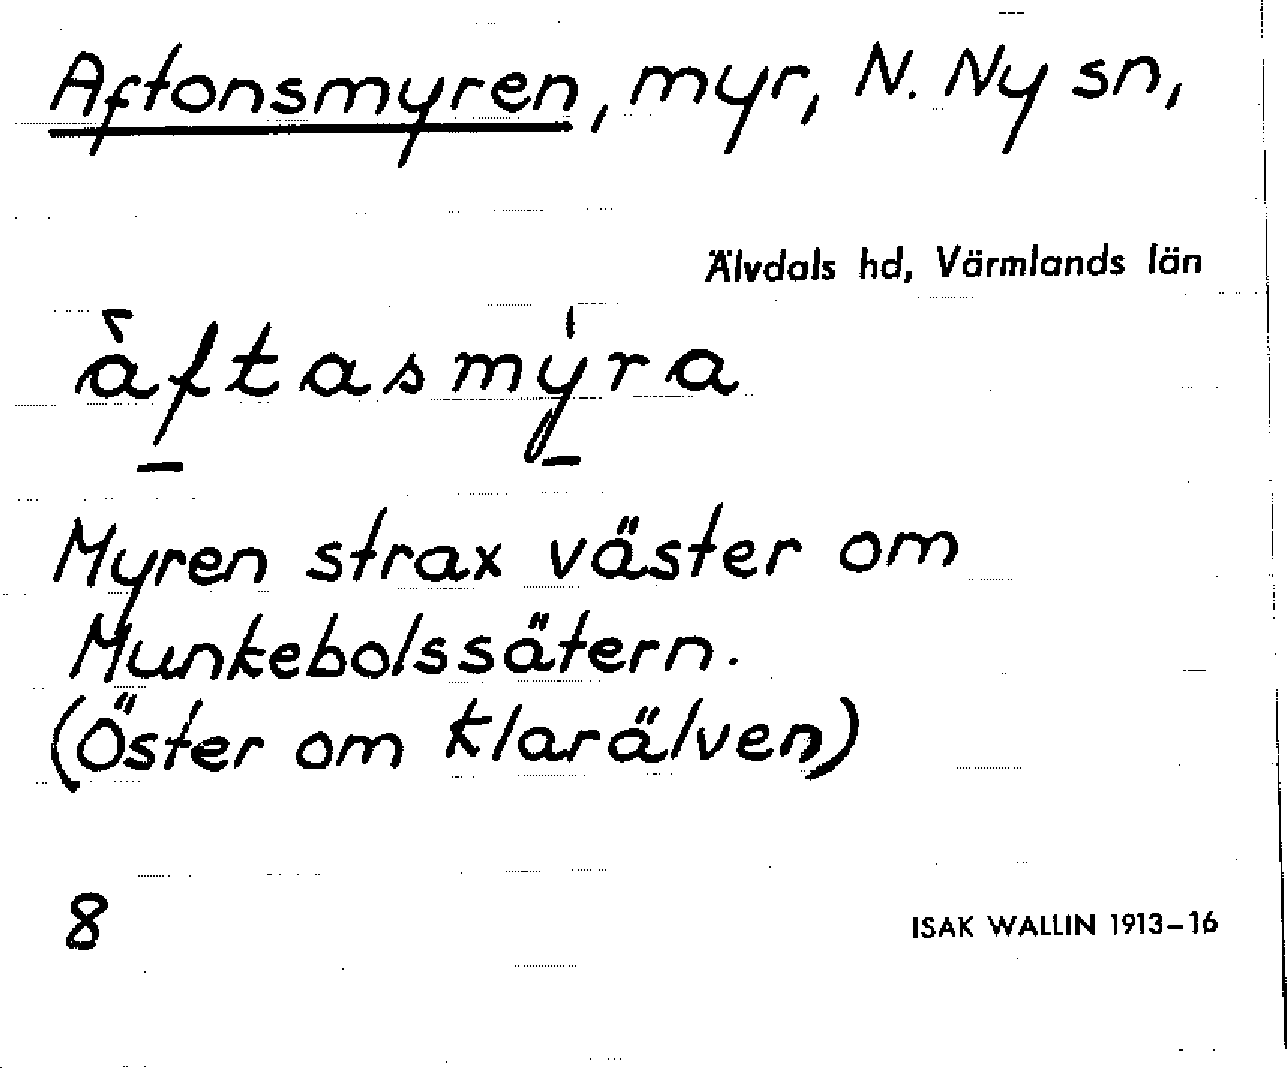 Aftonsmyren, myr, N. Ny sn,
Älvdals hd, Värmlands län
àftasmy̍ra
Myren strax väster om
Munkebolssätern.
(Öster om Klarälven)
8
ISAK WALLIN 1913-16